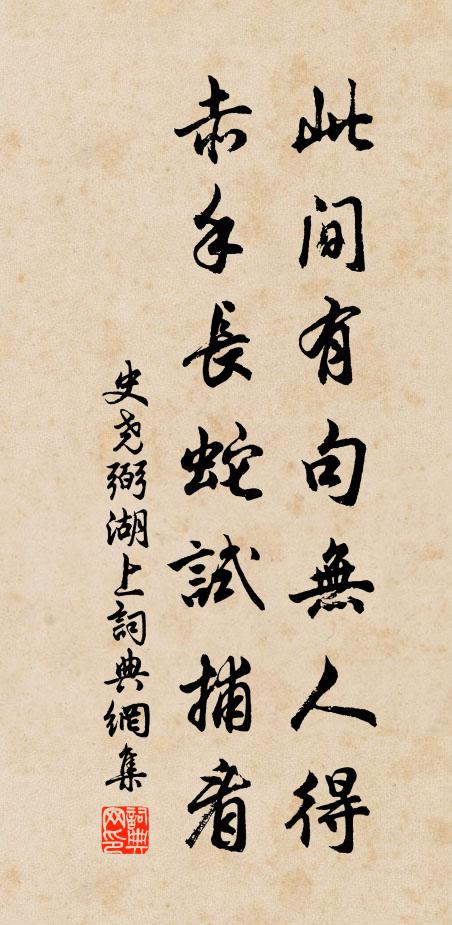 此間有句無人得
赤手長蛇試捕看
史堯弼湖上詞典網集
詞典網印